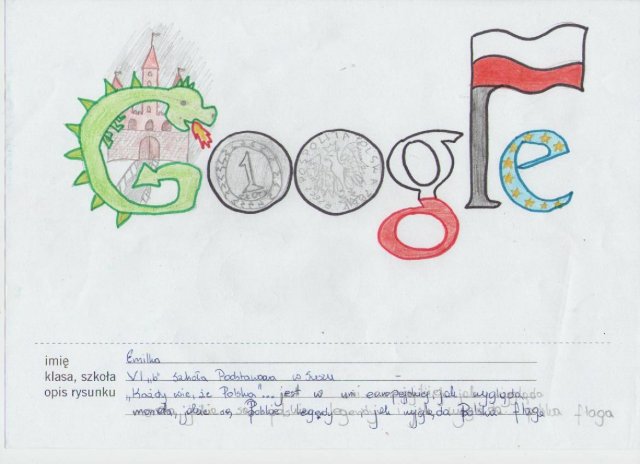 Google
imię Emilka
klasa, szkoła VI „b" Szkoła Podstawowa w Suszu
opis rysunku „Każdy wie, że Polska"... jest w unii europejskiej, jak wygląda
moneta, jakie są Polskie legendy jak wygląda Polska flaga